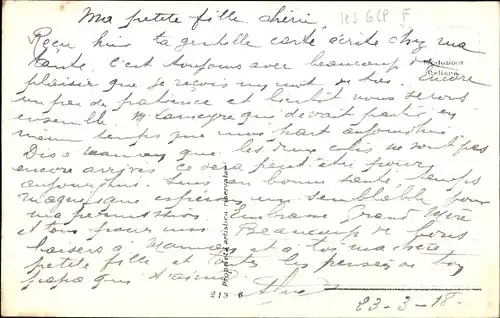 Ma petite fille chérie,
Reçu hier ta gentille carte écrite chez ma
tante. C'est toujours avec beaucoup de
plaisir que je reçois un mot de toi. Encore
un peu de patience et bientôt nous serons
ensemble. M. qui devait partir en
même temps que nous part aujourd'hui.
Dis à maman que les deux colis ne sont pas
encore arrivés ce sera peut être pour
aujourd'hui. Suis en bonne santé, temps
magnifique espérons un semblable pour
ma permission. Embrasse Grand Mère
et tous pour moi. Beaucoup de bons
baisers à Maman et à toi ma chère
petite fille et toutes les pensées de ton
papa qui t'aime
23-3-18.
Proprietà artistica riservata
213-6